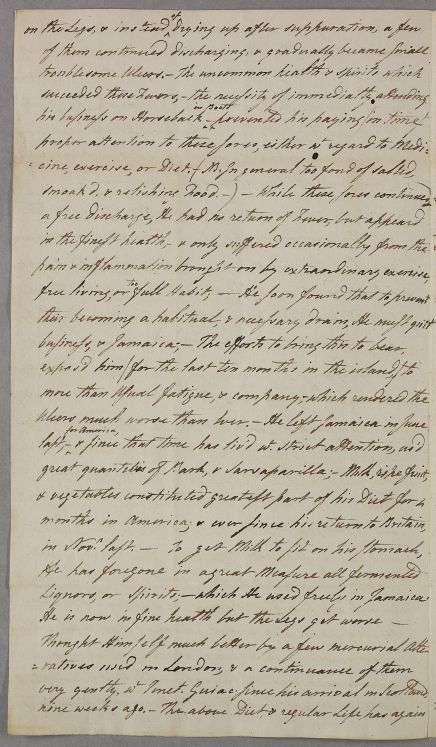 on the Legs, & instead of drying up after suppuration, a few
of them continued discharging, & gradually became small
troublesome Ulcers. – The uncommon health & spirits which
succeeded these Fevers, – the necessity of immediately attending
his business on Horseback in Boots – prevented his paying in time
proper attention to these sores, either wt regard to Medi-
=cine, exercise, or Diet. (N. B. In general too fond of salted,
smoak'd, & relishing food. –) – While these sores continued
a free discharge, He had no return of Fever, but appeared
in the finest health, & only suffered occasionally from the
pain & inflammation brought on by extraordinary exercise,
free living, or too full Habit; – He soon found that to prevent
this becoming a habitual & necessary drain, He must quit
business, & Jamaica; – The efforts to bring this to bear,
expos'd him (for the last ten months in the island) to
more than Usual fatigue, & company; which rendered the
Ulcers much worse than ever. – He left Jamaica in June
last, for America, & since that time has liv'd wt strict attention, us'd
great quantities of Bark, & Sarsaparilla; – Milk, ripe fruit,
& vegetables constituted greatest part of his Diet for 4
months in America; & ever since his return to Britain,
in Novr. last. – To get Milk to sit on his stomach,
He has foregone in a great Measure all fermented
Liquors, or Spirits; – which He used freely in Jamaica
He is now in fine health but the Legs get worse –
Thought Himself much better by a few mercurial Alte-
=ratives used in London; & a continuance of them
very gently, wt Tinct. Guiac: since his arrival in Scotland
nine weeks ago. – The above Diet, & regular Life has again